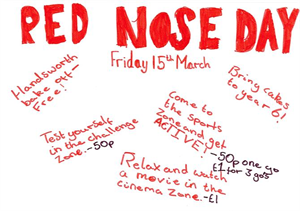 RED NOSE DAY
Friday 15th March
Handsworth
bake off -
free!
Bring cakes
to year 6!
Come to
the sports
zone and get
ACTIVEY!
-50p one go
£1 for 3 gos
Test yourself
in the challenge
zone.-50p
Relax and watch
a movie in the
cinema zone.-£1